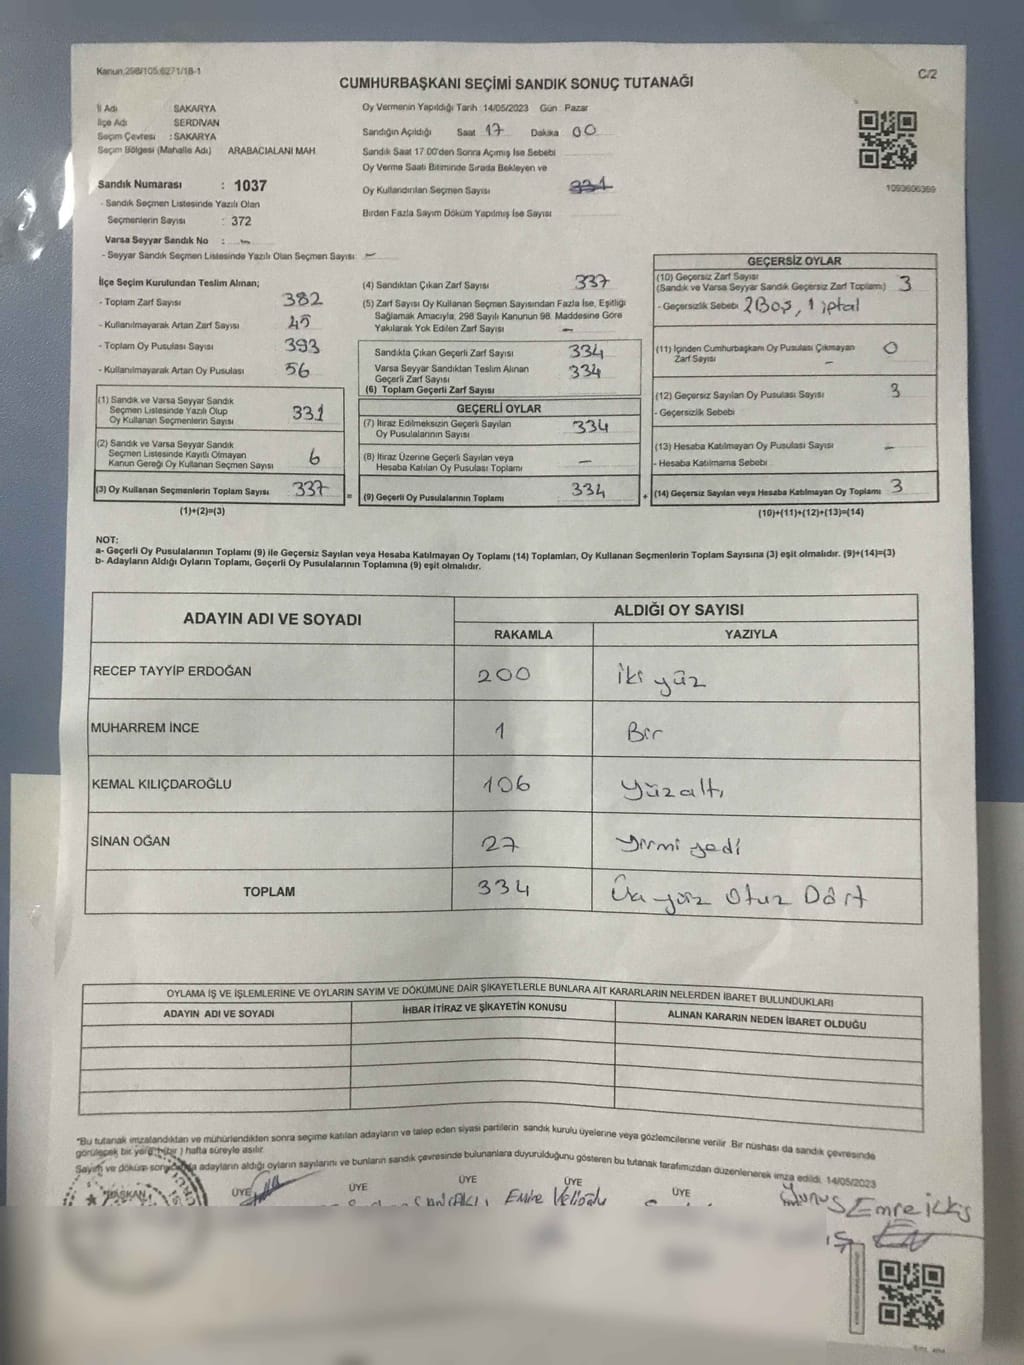 Kanun,298/105;6271/18-1
C/2
CUMHURBAŞKANI SEÇİMİ SANDIK SONUÇ TUTANAĞI
İl Adı SAKARYA
İlçe Adı SERDİVAN
Seçim Çevresi : SAKARYA
Seçim Bölgesi (Mahalle Adı) ARABACIALANI MAH.
Sandık Numarası : 1037
- Sandık Seçmen Listesinde Yazılı Olan
Seçmenlerin Sayısı : 372
Varsa Seyyar Sandık No : -
- Seyyar Sandık Seçmen Listesinde Yazılı Olan Seçmen Sayısı: -
Oy Vermenin Yapıldığı Tarih :14/05/2023 Gün : Pazar
Sandığın Açıldığı Saat 17 Dakika 00
Sandık Saat 17.00'den Sonra Açımış İse Sebebi
Oy Verme Saati Bitiminde Sırada Bekleyen ve
Oy Kullandırılan Seçmen Sayısı
Birden Fazla Sayım Döküm Yapılmış İse Sayısı
1093606369
İlçe Seçim Kurulundan Teslim Alınan;
- Toplam Zarf Sayısı 382
- Kullanılmayarak Artan Zarf Sayısı 45
- Toplam Oy Pusulası Sayısı 393
- Kullanılmayarak Artan Oy Pusulası 56
(1) Sandık ve Varsa Seyyar Sandık
Seçmen Listesinde Yazılı Olup
Oy Kullanan Seçmenlerin Sayısı 331
(2) Sandık ve Varsa Seyyar Sandık
Seçmen Listesinde Kayıtlı Olmayan
Kanun Gereği Oy Kullanan Seçmen Sayısı 6
(3) Oy Kullanan Seçmenlerin Toplam Sayısı 337
(1)+(2)=(3)
(4) Sandıktan Çıkan Zarf Sayısı 337
(5) Zarf Sayısı Oy Kullanan Seçmen Sayısından Fazla İse, Eşitliği
Sağlamak Amacıyla, 298 Sayılı Kanunun 98. Maddesine Göre
Yakılarak Yok Edilen Zarf Sayısı -
Sandıkta Çıkan Geçerli Zarf Sayısı 334
Varsa Seyyar Sandıktan Teslim Alınan
Geçerli Zarf Sayısı 334
(6) Toplam Geçerli Zarf Sayısı
GEÇERLİ OYLAR
(7) İtiraz Edilmeksizin Geçerli Sayılan
Oy Pusulalarının Sayısı 334
(8) İtiraz Üzerine Geçerli Sayılan veya
Hesaba Katılan Oy Pusulası Toplamı -
= (9) Geçerli Oy Pusulalarının Toplamı 334
GEÇERSİZ OYLAR
(10) Geçersiz Zarf Sayısı
(Sandık ve Varsa Seyyar Sandık Geçersiz Zarf Toplamı) 3
- Geçersizlik Sebebi 2 Boş, 1 iptal
(11) İçinden Cumhurbaşkanı Oy Pusulası Çıkmayan
Zarf Sayısı 0
-
(12) Geçersiz Sayılan Oy Pusulası Sayısı 3
- Geçersizlik Sebebi
(13) Hesaba Katılmayan Oy Pusulası Sayısı -
- Hesaba Katılmama Sebebi
+ (14) Geçersiz Sayılan veya Hesaba Katılmayan Oy Toplamı 3
(10)+(11)+(12)+(13)=(14)
NOT:
a- Geçerli Oy Pusulalarının Toplamı (9) ile Geçersiz Sayılan veya Hesaba Katılmayan Oy Toplamı (14) Toplamları, Oy Kullanan Seçmenlerin Toplam Sayısına (3) eşit olmalıdır. (9)+(14)=(3)
b- Adayların Aldığı Oyların Toplamı, Geçerli Oy Pusulalarının Toplamına (9) eşit olmalıdır.
ADAYIN ADI VE SOYADI
ALDIĞI OY SAYISI
RAKAMLA YAZIYLA
RECEP TAYYİP ERDOĞAN 200 İki yüz
MUHARREM İNCE 1 Bir
KEMAL KILIÇDAROĞLU 106 Yüzaltı
SİNAN OĞAN 27 Yirmi yedi
TOPLAM 334 Üç yüz Otuz Dört
OYLAMA İŞ VE İŞLEMLERİNE VE OYLARIN SAYIM VE DÖKÜMÜNE DAİR ŞİKAYETLERLE BUNLARA AİT KARARLARIN NELERDEN İBARET BULUNDUKLARI
ADAYIN ADI VE SOYADI İHBAR İTİRAZ VE ŞİKAYETİN KONUSU ALINAN KARARIN NEDEN İBARET OLDUĞU
*Bu tutanak imzalandıktan ve mühürlendikten sonra seçime katılan adayların ve talep eden siyasi partilerin sandık kurulu üyelerine veya gözlemcilerine verilir. Bir nüshası da sandık çevresinde
görülecek bir yere, (bir) hafta süreyle asılır.
Sayım ve döküm adayların aldığı oyların sayılarını ve bunların sandık çevresinde bulunanlara duyurulduğunu gösteren bu tutanak tarafımızdan düzenlenerek imza edildi. 14/05/2023
BAŞKAN ÜYE ÜYE ÜYE ÜYE ÜYE
Emre Velioğlu
Yunus Emre